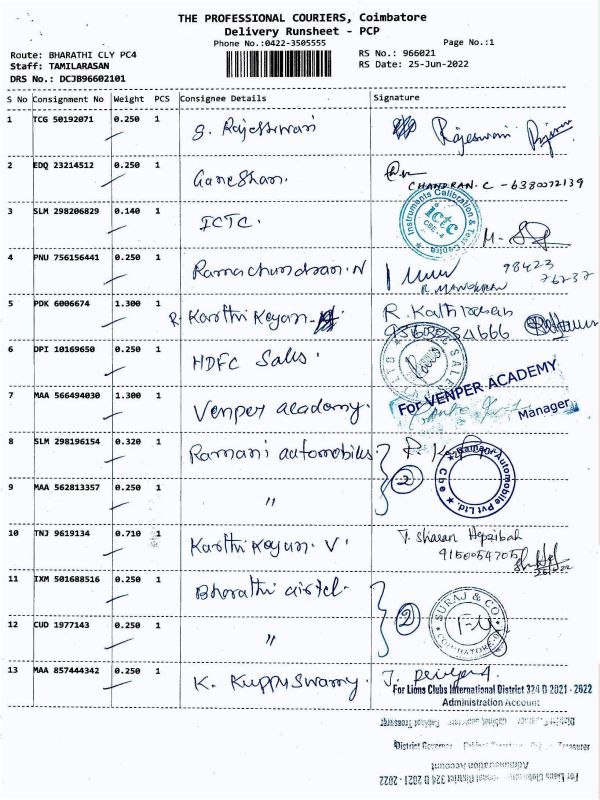 THE PROFESSIONAL COURIERS, Coimbatore
Delivery Runsheet - PCP
Phone No.:0422-3505555
Page No.:1
Route: BHARATHI CLY PC4
RS No.: 966021
Staff: TAMILARASAN
RS Date: 25-Jun-2022
DRS No.: DCJB96602101
S No Consignment No Weight PCS Consignee Details Signature
1 TCG 50192071 0.250 1 S. Rajeshwari Rajeswari
2 EDQ 23214512 0.250 1 Ganeshan.
CHANDRAN.C - 6380072139
3 SLM 298206829 0.140 1 ICTC.
Instruments Calibration & Test Centre
ictc
CBE-4
4 PNU 756156441 0.250 1 Ramachandran.N
98423
76237
R. MANOHARAN
5 PDK 6006674 1.300 1 R. Karthikeyan
6 DPI 10169650 0.250 1 HDFC Sales.
SALES
7 MAA 566494030 1.300 1 Venper academy.
For VENPER ACADEMY
Manager
8 SLM 298196154 0.320 1 Ramani automobiles
2
Automobile Pvt Ltd.
Cbe
9 MAA 562813357 0.250 1 "
10 TNJ 9619134 0.710 1 Karthikeyan. V
T. Sharan Hepzibah
9150054705
11 IXM 501688516 0.250 1 Bharathi airtel.
2
SURAJ & CO.
COIMBATORE
12 CUD 1977143 0.250 1 "
13 MAA 857444342 0.250 1 K. Kuppuswamy.
For Lions Clubs International District 324 D 2021 - 2022
Administration Account
District Governor Cabinet Secretary Treasurer
Administration Account
For Lions Clubs International District 324 D 2021 - 2022